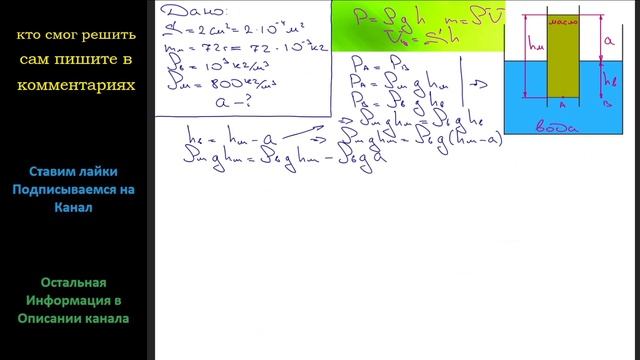 кто смог решить
сам пишите в
комментариях
Ставим лайки
Подписываемся на
Канал
Остальная
Информация в
Описании канала
Дано:
S = 2 см² = 2·10⁻⁴ м²
mм = 72 г = 72·10⁻³ кг
ρв = 10³ кг/м³
ρм = 800 кг/м³
a - ?
P = ρgh m = ρV
Vв = S'h
PA = PB
PA = ρм g hм
PB = ρв g hв
=> ρм g hм = ρв g hв
hв = hм - a => ρм g hм = ρв g (hм - a)
ρм g hм = ρв g hм - ρв g a
масло
hм
a
hв
A
B
вода